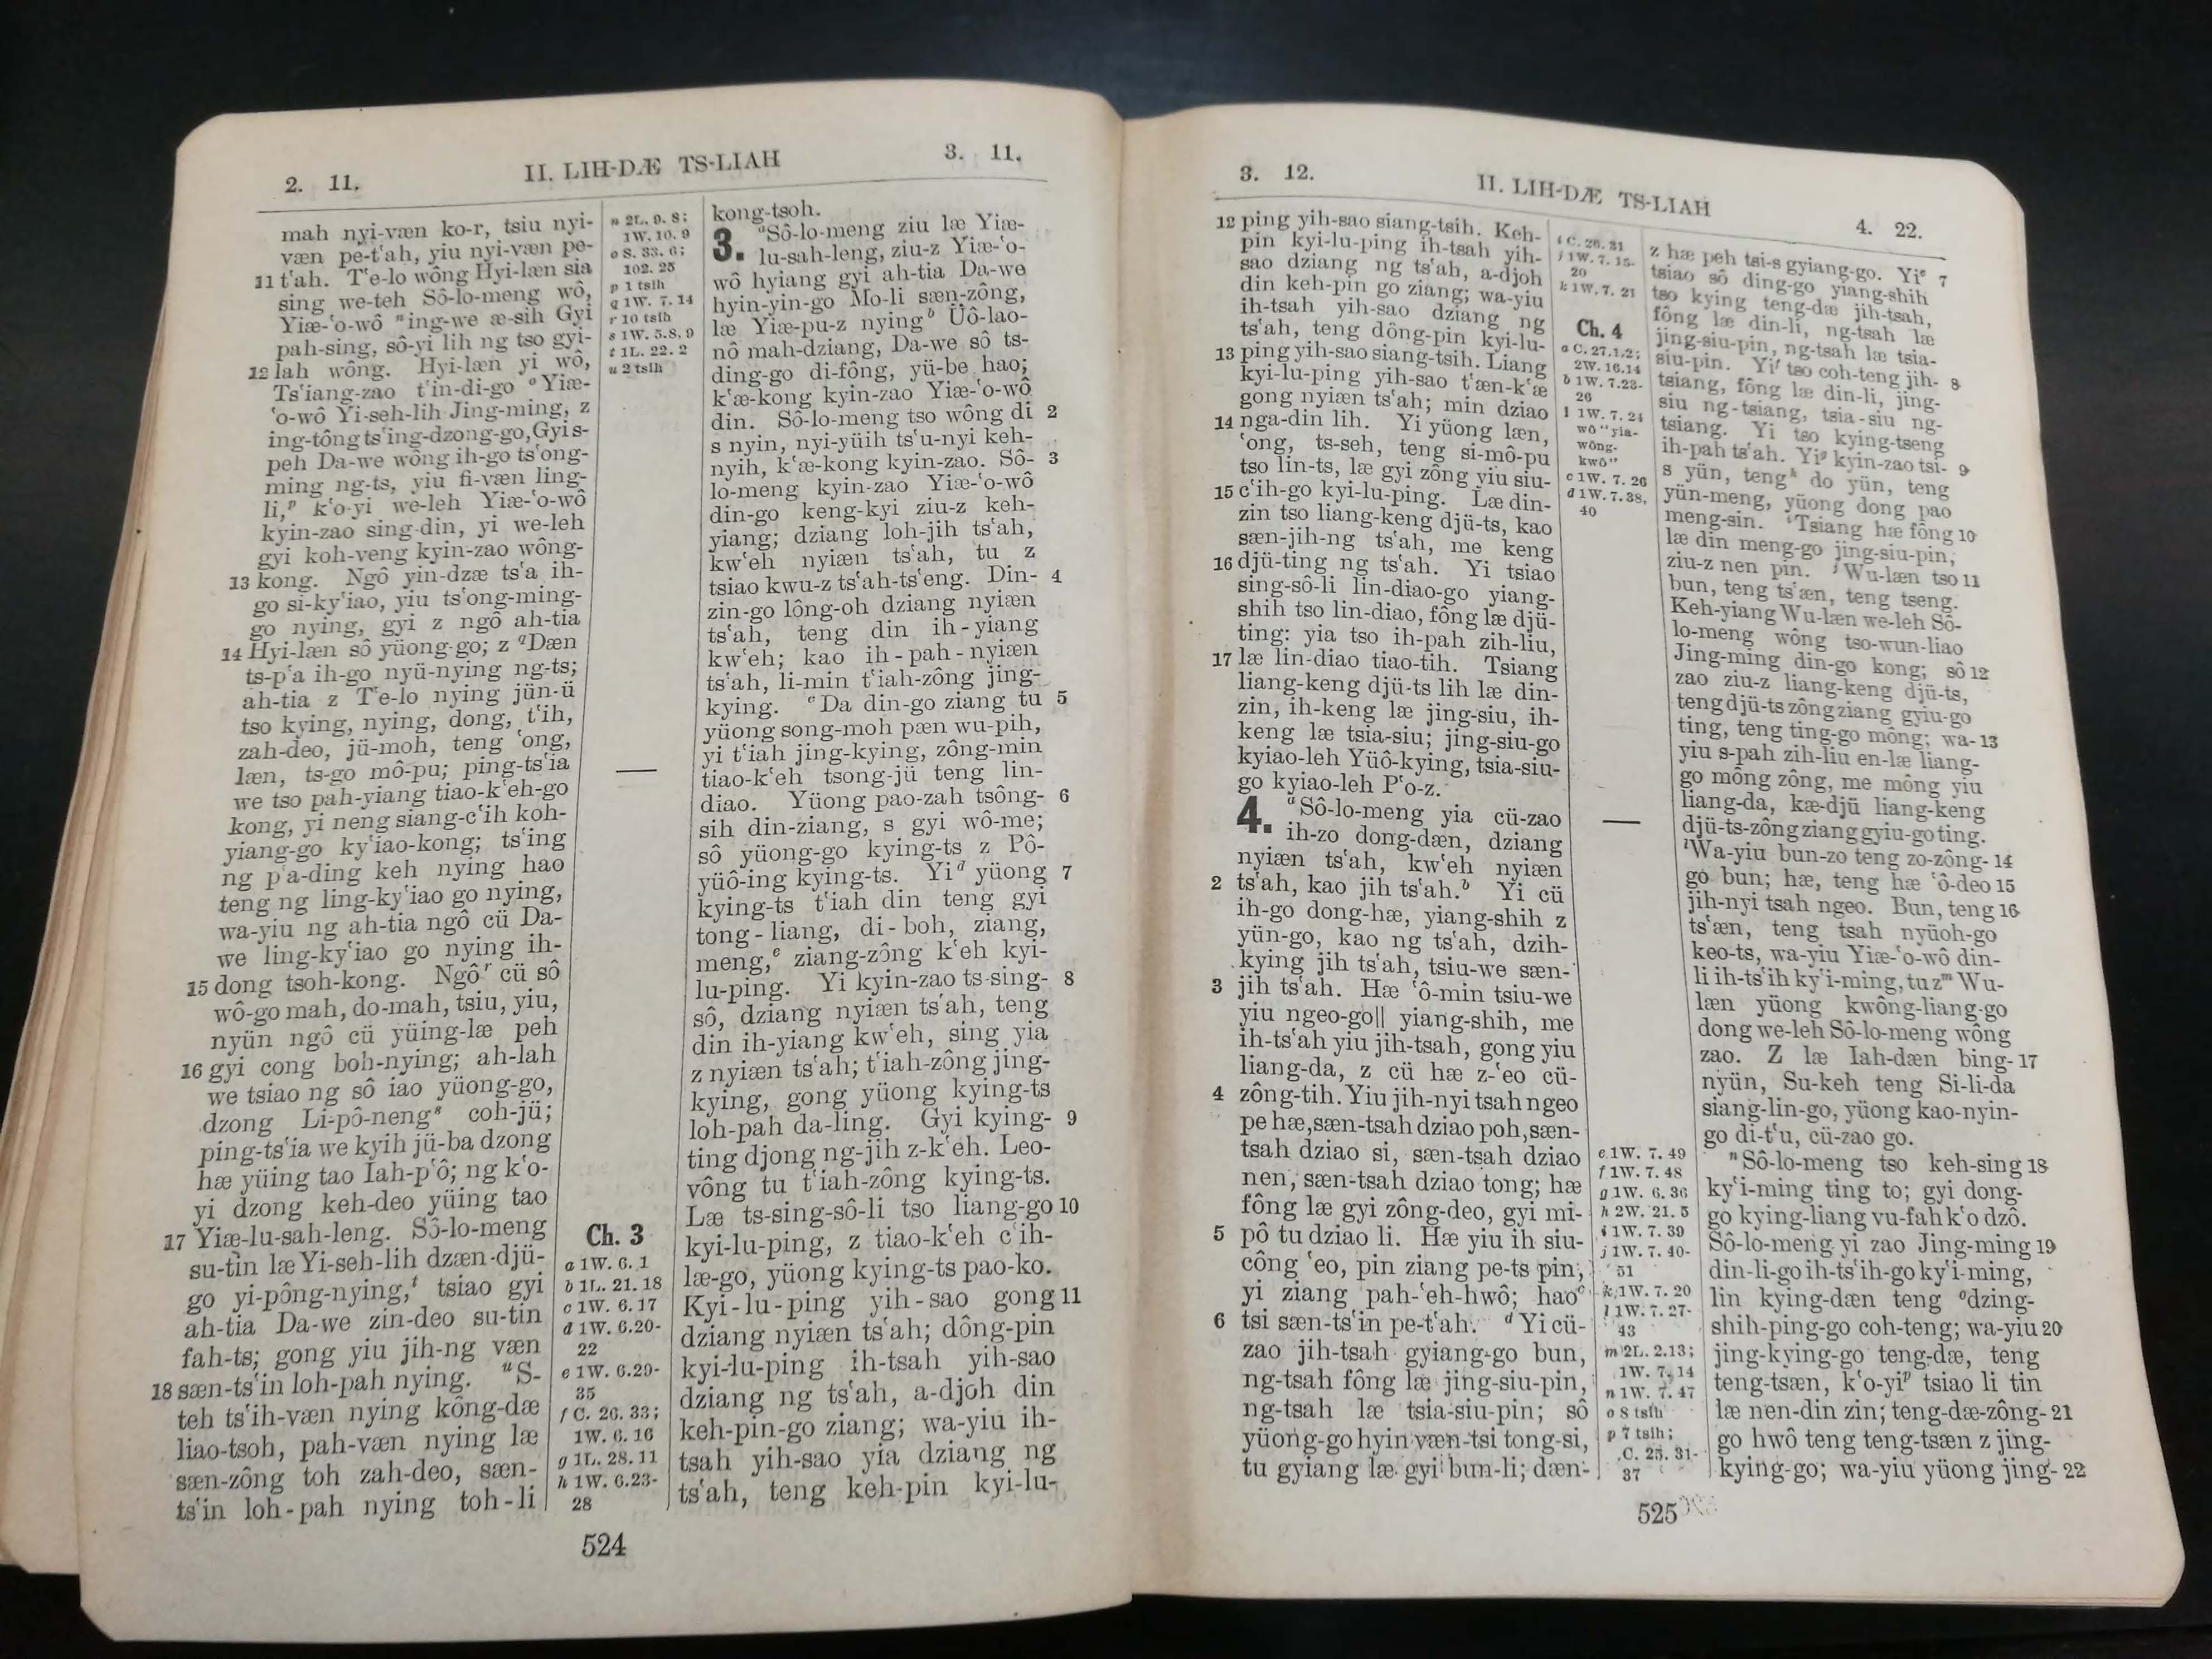 2. 11.
II. LIH-DÆ TS-LIAH
3. 11.
mah nyi-væn ko-r, tsiu nyi-
væn pe-tʽah, yiu nyi-væn pe-
11 tʽah. Tʽe-lo wông Hyi-læn sia
sing we-teh Sô-lo-meng wô,
Yiæ-ʽo-wô ⁿing-we æ-sih Gyi
pah-sing, sô-yi lih ng tso gyi-
12 lah wông. Hyi-læn yi wô,
Tsʽiang-zao tʽin-di-go ᵒYiæ-
ʽo-wô Yi-seh-lih Jing-ming, z
ing-tông tsʽing-dzong-go, Gyi s-
peh Da-we wông ih-go tsʽong-
ming ng-ts, yiu fi-væn ling-
li,ᵖ kʽo-yi we-leh Yiæ-ʽo-wô
kyin-zao sing-din, yi we-leh
gyi koh-veng kyin-zao wông-
13 kong. Ngô yin-dzæ tsʽa ih-
go si-kyʽiao, yiu tsʽong-ming-
go nying, gyi z ngô ah-tia
14 Hyi-læn sô yüong-go; z qDæn
ts-pʽa ih-go nyü-nying ng-ts;
ah-tia z Tʽe-lo nying jün-ü
tso kying, nying, dong, tʽih,
zah-deo, jü-moh, teng ʽong,
læn, ts-go mô-pu; ping-tsʽia
we tso pah-yiang tiao-kʽeh-go
kong, yi neng siang-cʽih koh-
yiang-go kyʽiao-kong; tsʽing
ng pʽa-ding keh nying hao
teng ng ling-kyʽiao go nying,
wa-yiu ng ah-tia ngô cü Da-
we ling-kyʽiao go nying ih-
15 dong tsoh-kong. Ngôʳ cü sô
wô-go mah, do-mah, tsiu, yiu,
nyün ngô cü yüing-læ peh
16 gyi cong boh-nying; ah-lah
we tsiao ng sô iao yüong-go,
dzong Li-pô-nengˢ coh-jü;
ping-tsʽia we kyih jü-ba dzong
hæ yüing tao Iah-pʽô; ng kʽo-
yi dzong keh-deo yüing tao
17 Yiæ-lu-sah-leng. Sô-lo-meng
su-tin læ Yi-seh-lih dzæn-djü-
go yi-pông-nying,ᵗ tsiao gyi
ah-tia Da-we zin-deo su-tin
fah-ts; gong yiu jih-ng væn
18 sæn-tsʽin loh-pah nying. ᵘS-
teh tsʽih-væn nying kông-dæ
liao-tsoh, pah-væn nying læ
sæn-zông toh zah-deo, sæn-
tsʽin loh-pah nying toh-li
n 2L. 9. 8;
1W. 10. 9
o S. 33. 6;
102. 25
p 1 tsih
q 1W. 7. 14
r 10 tsih
s 1W. 5.8, 9
t 1L. 22. 2
u 2 tsih
Ch. 3
a 1W. 6. 1
b 1L. 21. 18
c 1W. 6. 17
d 1W. 6.20-
22
e 1W. 6.29-
35
f C. 26. 33;
1W. 6. 16
g 1L. 28. 11
h 1W. 6.23-
28
kong-tsoh.
3. ᵃSô-lo-meng ziu læ Yiæ-
lu-sah-leng, ziu-z Yiæ-ʽo-
wô hyiang gyi ah-tia Da-we
hyin-yin-go Mo-li sæn-zông,
læ Yiæ-pu-z nyingᵇ Üô-lao-
nô mah-dziang, Da-we sô ts-
ding-go di-fông, yü-be hao;
kʽæ-kong kyin-zao Yiæ-ʽo-wô
din. Sô-lo-meng tso wông di 2
s nyin, nyi-yüih tsʽu-nyi keh-
nyih, kʽæ-kong kyin-zao. Sô- 3
lo-meng kyin-zao Yiæ-ʽo-wô
din-go keng-kyi ziu-z keh-
yiang; dziang loh-jih tsʽah,
kwʽeh nyiæn tsʽah, tu z
tsiao kwu-z tsʽah-tsʽeng. Din- 4
zin-go lông-oh dziang nyiæn
tsʽah, teng din ih-yiang
kwʽeh; kao ih-pah-nyiæn
tsʽah, li-min tʽiah-zông jing-
kying. ᶜDa din-go ziang tu 5
yüong song-moh pæn wu-pih,
yi tʽiah jing-kying, zông-min
tiao-kʽeh tsong-jü teng lin-
diao. Yüong pao-zah tsông- 6
sih din-ziang, s gyi wô-me;
sô yüong-go kying-ts z Pô-
yüô-ing kying-ts. Yiᵈ yüong 7
kying-ts tʽiah din teng gyi
tong-liang, di-boh, ziang,
meng,ᵉ ziang-zông kʽeh kyi-
lu-ping. Yi kyin-zao ts-sing- 8
sô, dziang nyiæn tsʽah, teng
din ih-yiang kwʽeh, sing yia
z nyiæn tsʽah; tʽiah-zông jing-
kying, gong yüong kying-ts
loh-pah da-ling. Gyi kying- 9
ting djong ng-jih z-kʽeh. Leo-
vông tu tʽiah-zông kying-ts.
Læ ts-sing-sô-li tso liang-go 10
kyi-lu-ping, z tiao-kʽeh cʽih-
læ-go, yüong kying-ts pao-ko.
Kyi-lu-ping yih-sao gong 11
dziang nyiæn tsʽah; dông-pin
kyi-lu-ping ih-tsah yih-sao
dziang ng tsʽah, a-djoh din
keh-pin-go ziang; wa-yiu ih-
tsah yih-sao yia dziang ng
tsʽah, teng keh-pin kyi-lu-
524
3. 12.
II. LIH-DÆ TS-LIAH
4. 22.
12 ping yih-sao siang-tsih. Keh-
pin kyi-lu-ping ih-tsah yih-
sao dziang ng tsʽah, a-djoh
din keh-pin go ziang; wa-yiu
ih-tsah yih-sao dziang ng
tsʽah, teng dông-pin kyi-lu-
13 ping yih-sao siang-tsih. Liang
kyi-lu-ping yih-sao tʽæn-kʽæ
gong nyiæn tsʽah; min dziao
14 nga-din lih. Yi yüong læn,
ʽong, ts-seh, teng si-mô-pu
tso lin-ts, læ gyi zông yiu siu-
15 cʽih-go kyi-lu-ping. Læ din-
zin tso liang-keng djü-ts, kao
sæn-jih-ng tsʽah, me keng
16 djü-ting ng tsʽah. Yi tsiao
sing-sô-li lin-diao-go yiang-
shih tso lin-diao, fông læ djü-
ting: yia tso ih-pah zih-liu,
17 læ lin-diao tiao-tih. Tsiang
liang-keng djü-ts lih læ din-
zin, ih-keng læ jing-siu, ih-
keng læ tsia-siu; jing-siu-go
kyiao-leh Yüô-kying, tsia-siu-
go kyiao-leh Pʽo-z.
4. ᵃSô-lo-meng yia cü-zao
ih-zo dong-dæn, dziang
nyiæn tsʽah, kwʽeh nyiæn
2 tsʽah, kao jih tsʽah.ᵇ Yi cü
ih-go dong-hæ, yiang-shih z
yün-go, kao ng tsʽah, dzih-
kying jih tsʽah, tsiu-we sæn-
3 jih tsʽah. Hæ ʽô-min tsiu-we
yiu ngeo-go|| yiang-shih, me
ih-tsʽah yiu jih-tsah, gong yiu
liang-da, z cü hæ z-ʽeo cü-
4 zông-tih. Yiu jih-nyi tsah ngeo
pe hæ, sæn-tsah dziao poh, sæn-
tsah dziao si, sæn-tsah dziao
nen, sæn-tsah dziao tong; hæ
fông læ gyi zông-deo, gyi mi-
5 pô tu dziao li. Hæ yiu ih siu-
công ʽeo, pin ziang pe-ts pin,
yi ziang pah-ʽeh-hwô; haoᶜ
6 tsi sæn-tsʽin pe-tʽah. ᵈYi cü-
zao jih-tsah gyiang-go bun,
ng-tsah fông læ jing-siu-pin,
ng-tsah læ tsia-siu-pin; sô
yüong-go hyin væn-tsi tong-si,
tu gyiang læ gyi bun-li; dæn-
i C. 26. 31
j 1W. 7. 15-
20
k 1W. 7. 21
Ch. 4
a C. 27.1,2;
2W. 16.14
b 1W. 7.23-
26
‖ 1W. 7. 24
wô "yia-
wông-
kwô"
c 1W. 7. 26
d 1W. 7.38,
40
e 1W. 7. 49
f 1W. 7. 48
g 1W. 6. 36
h 2W. 21. 5
i 1W. 7. 39
j 1W. 7. 40-
51
k 1W. 7. 20
l 1W. 7. 27-
43
m 2L. 2.13;
1W. 7. 14
n 1W. 7. 47
o 8 tsih
p 7 tsih;
C. 25. 31-
37
z hæ peh tsi-s gyiang-go. Yiᵉ 7
tsiao sô ding-go yiang-shih
tso kying teng-dæ jih-tsah,
fông læ din-li, ng-tsah læ
jing-siu-pin, ng-tsah læ tsia-
siu-pin. Yiᶠ tso coh-teng jih- 8
tsiang, fông læ din-li, jing-
siu ng-tsiang, tsia-siu ng-
tsiang. Yi tso kying-tseng
ih-pah tsʽah. Yiᵍ kyin-zao tsi- 9
s yün, tengʰ do yün, teng
yün-meng, yüong dong pao
meng-sin. ⁱTsiang hæ fông 10
læ din meng-go jing-siu-pin,
ziu-z nen pin. ʲWu-læn tso 11
bun, teng tsʽæn, teng tseng.
Keh-yiang Wu-læn we-leh Sô-
lo-meng wông tso-wun-liao
Jing-ming din-go kong; sô 12
zao ziu-z liang-keng djü-ts,
teng djü-ts zông ziang gyiu-go
ting, teng ting-go mông; wa- 13
yiu s-pah zih-liu en-læ liang-
go mông zông, me mông yiu
liang-da, kæ-djü liang-keng
djü-ts-zông ziang gyiu-go ting.
ˡWa-yiu bun-zo teng zo-zông- 14
go bun; hæ, teng hæ ʽô-deo 15
jih-nyi tsah ngeo. Bun, teng 16
tsʽæn, teng tsah nyüoh-go
keo-ts, wa-yiu Yiæ-ʽo-wô din-
li ih-tsʽih kyʽi-ming, tu zᵐ Wu-
læn yüong kwông-liang-go
dong we-leh Sô-lo-meng wông
zao. Z læ Iah-dæn bing- 17
nyün, Su-keh teng Si-li-da
siang-lin-go, yüong kao-nyin-
go di-tʽu, cü-zao go.
ⁿSô-lo-meng tso keh-sing 18
kyʽi-ming ting to; gyi dong-
go kying-liang vu-fah kʽo dzô.
Sô-lo-meng yi zao Jing-ming 19
din-li-go ih-tsʽih-go kyʽi-ming,
lin kying-dæn teng ᵒdzing-
shih-ping-go coh-teng; wa-yiu 20
jing-kying-go teng-dæ, teng
teng-tsæn, kʽo-yiᵖ tsiao li tin
læ nen-din zin; teng-dæ-zông- 21
go hwô teng teng-tsæn z jing-
kying-go; wa-yiu yüong jing- 22
525